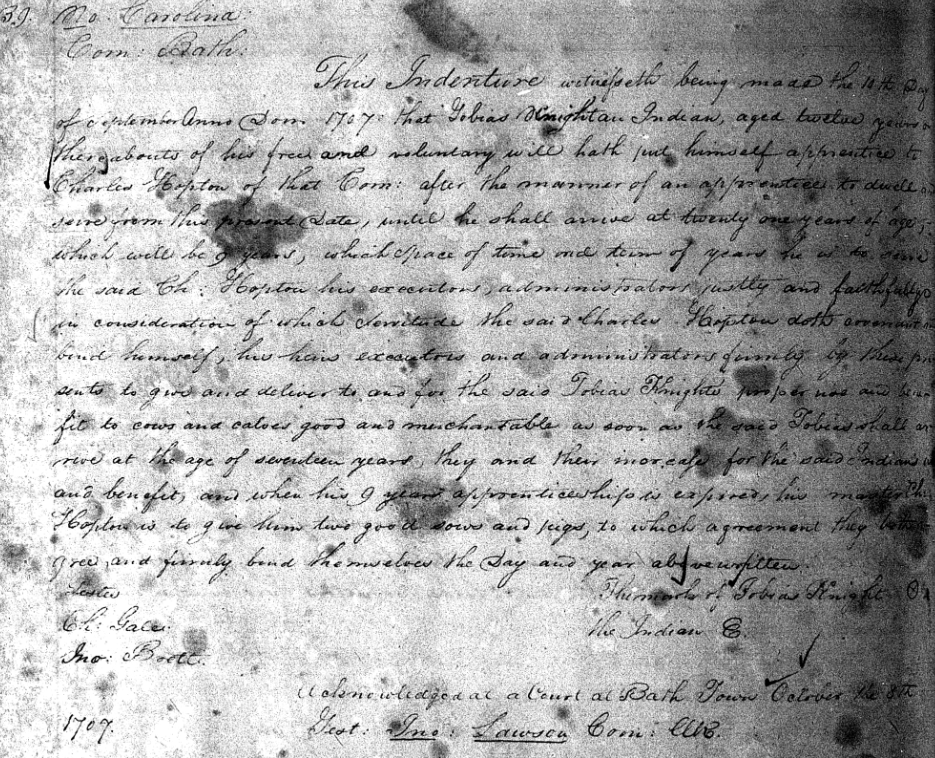 No: Carolina:
Com: Bath:
This Indenture witnesseth being made the 10th Day
of September Anno Dom 1707: that Tobias Knight an Indian, aged twelve years
thereabouts of his free and voluntary will hath put himself apprentice to
Charles Hopton of that Com: after the manner of an apprentice to dwell
serve from this present Date, until he shall arrive at twenty one years of age,
which will be 9 years, which space of time and term of years he is to serve
the said Ch: Hopton his executors, administrators justly and faithfully
in consideration of which servitude the said Charles Hopton doth covenant
bind himself, his heirs executors and administrators firmly by these pre
sents to give and deliver to and for the said Tobias Knights proper use and bene
fit to cows and calves good and merchantable as soon as the said Tobias shall ar
rive at the age of seventeen years, they and their increase for the said Indians
and benefit, and when his 9 years apprenticeship is expired, his master Ch:
Hopton is to give him two good sows and pigs, to which agreement they both
gree and firmly bind themselves the Day and year above written.
Testes The mark of Tobias Knight
Ch: Gale: the Indian E.
Jno: Boett.
Acknowledged at a Court at Bath Town October the 8th
1707. Test: Jno: Lawson Com: